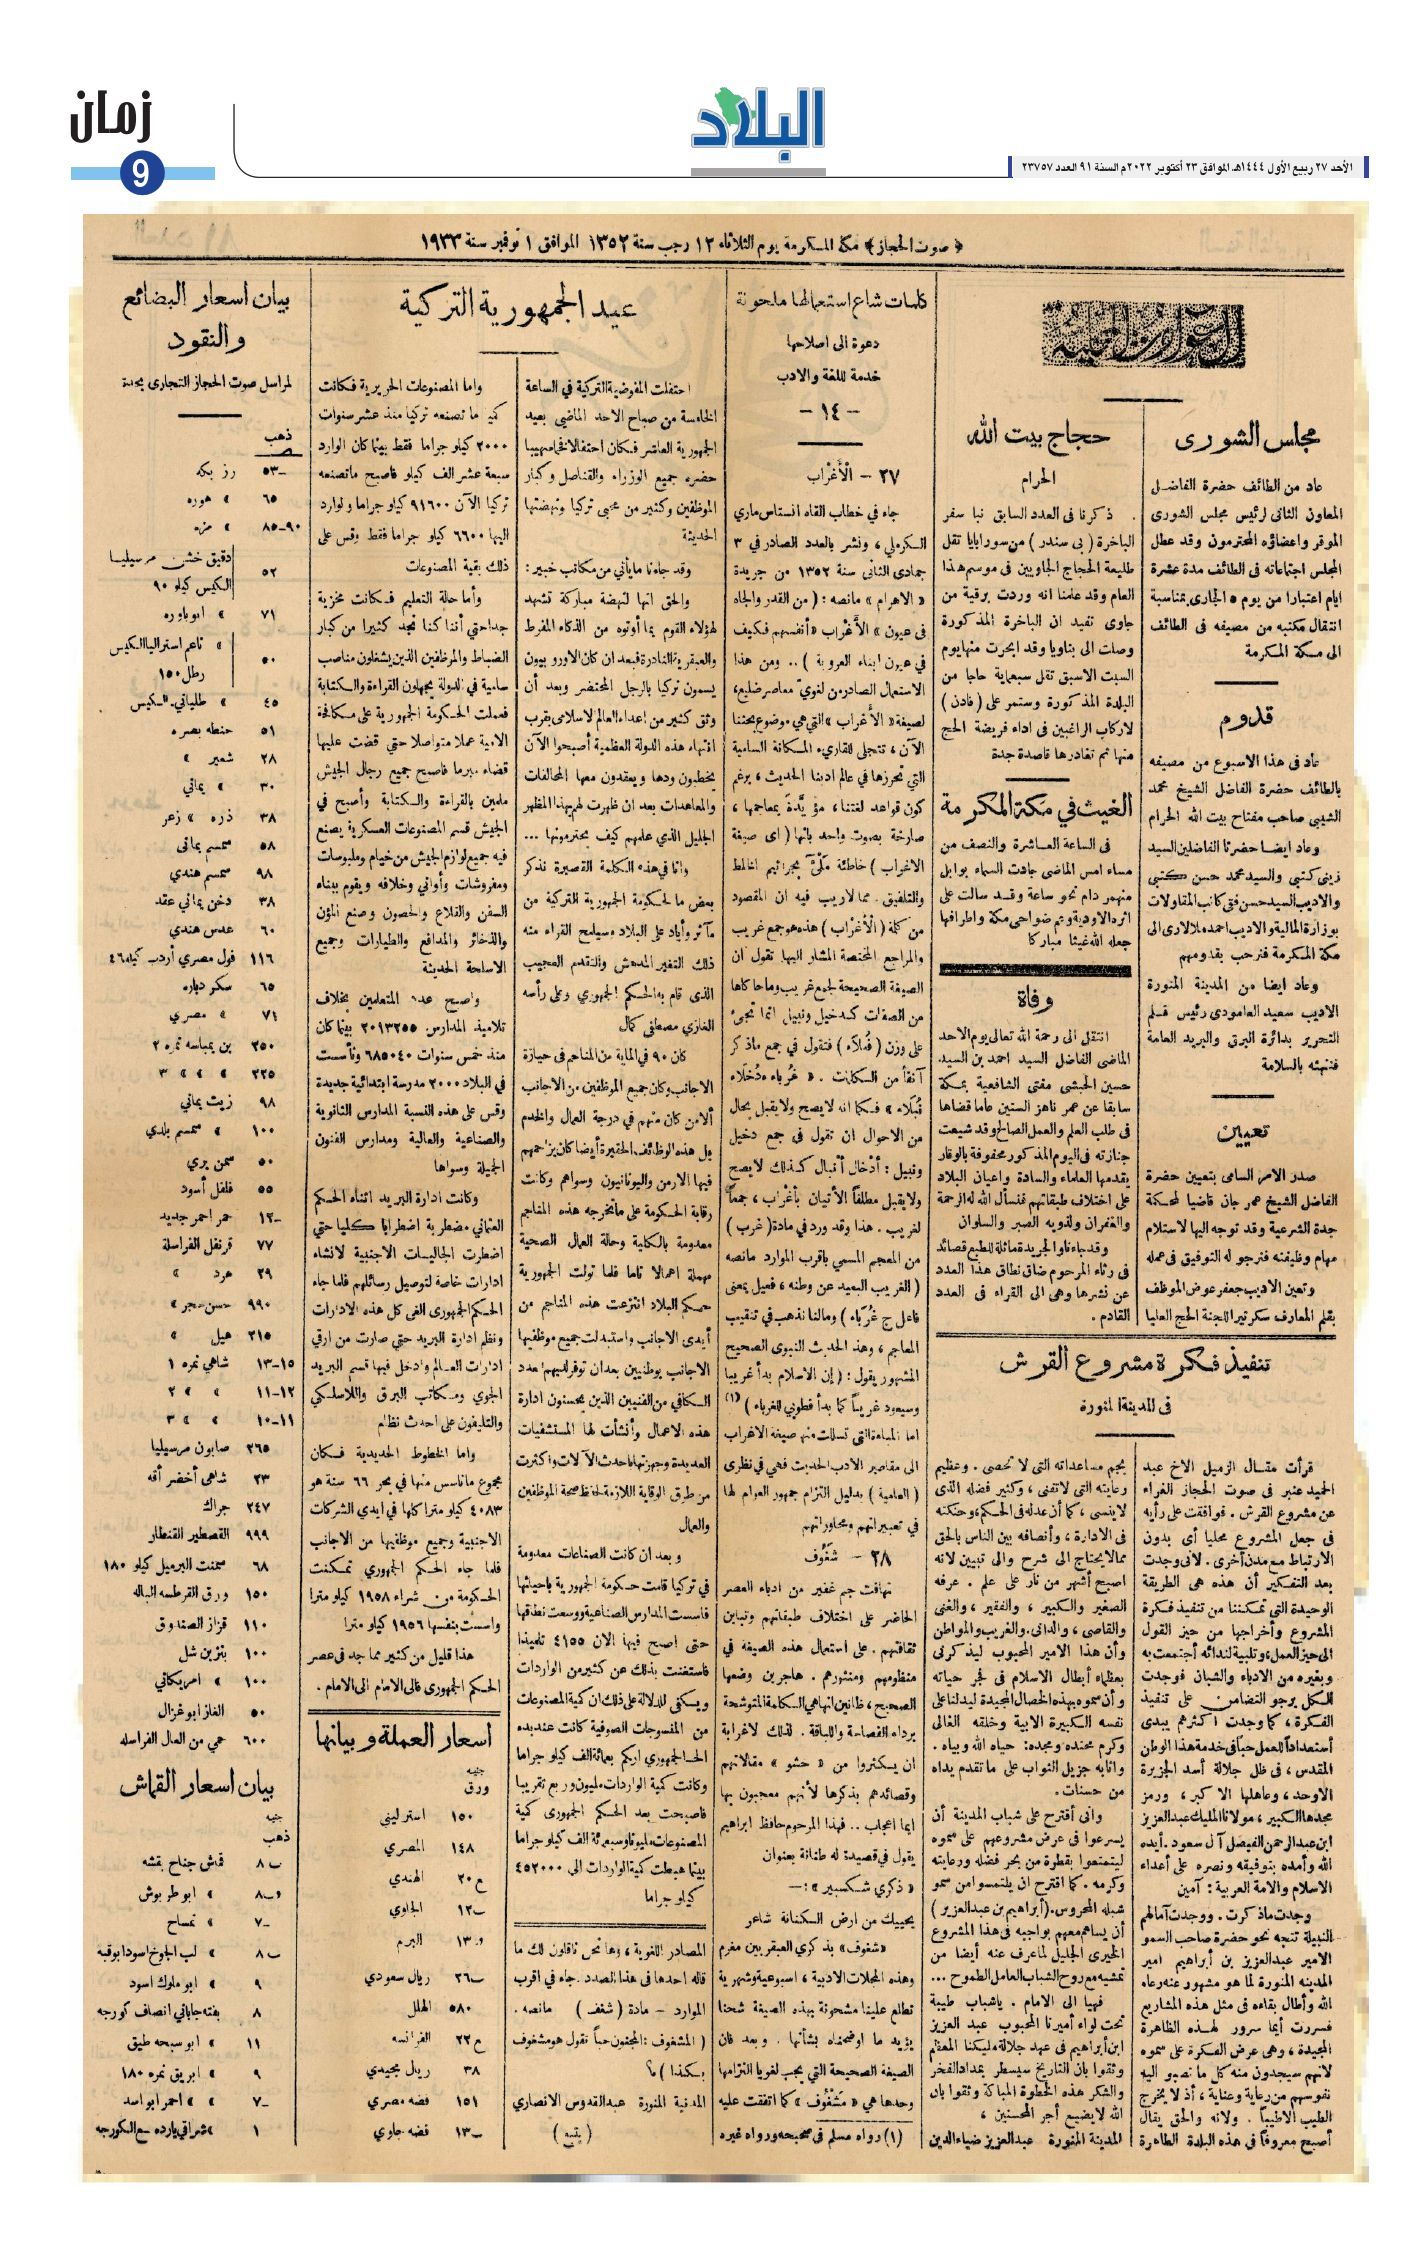 زمان
9
البلاد
الأحد ٢٧ ربيع الأول ١٤٤٤هـ الموافق ٢٣ أكتوبر ٢٠٢٢م السنة ٩١ العدد ٢٣٧٥٧
﴿ صوت الحجاز ﴾ مكة المكرمة يوم الثلاثاء ١٢ رجب سنة ١٣٥٢ الموافق ١ نوفمبر سنة ١٩٣٣
مجلس الشورى
عاد من الطائف حضرة الفاضل
المعاون الثانى لرئيس مجلس الشورى
الموقر واعضاؤه المحترمون وقد عطل
المجلس اجتماعاته فى الطائف مدة عشرة
ايام اعتبارا من يوم ٥ الجارى بمناسبة
انتقال مكتبه من مصيفه فى الطائف
الى مكة المكرمة
قدوم
عاد فى هذا الاسبوع من مصيفه
بالطائف حضرة الفاضل الشيخ محمد
الشيبى صاحب مفتاح بيت الله الحرام
وعاد ايضا حضرتا الفاضلين السيد
زينى كتبي والسيد محمد حسن كتبي
والاديب السيد حسن فتى كاتب المقاولات
بوزارة المالية والاديب احمد ملا لارى الى
مكة المكرمة فنرحب بقدومهم
وعاد ايضا من المدينة المنورة
الاديب سعيد العامودى رئيس قلم
التحرير بدائرة البرق والبريد العامة
فنهنئه بالسلامة
تعيين
صدر الامر السامى بتعيين حضرة
الفاضل الشيخ عمر جان قاضيا لمحكمة
جدة الشرعية وقد توجه اليها لاستلام
مهام وظيفته فنرجو له التوفيق فى عمله
وتعين الاديب جعفر عوض الموظف
بقلم المعارف سكرتيرا للجنة الحج العليا
حجاج بيت الله
الحرام
ذكرنا فى العدد السابق نبا سفر
الباخرة ( بى سندر ) من سورابايا تقل
طليعة الحجاج الجاويين فى موسم هذا
العام وقد علمنا انه وردت برقية من
جاوى تفيد ان الباخرة المذكورة
وصلت الى بتاويا وقد ابحرت منها يوم
السبت الاسبق تقل سبعماية حاجا من
البلدة المذكورة وستمر على ( فادن )
لاركاب الراغبين فى اداء فريضة الحج
منها ثم تغادرها قاصدة جدة
الغيث في مكة المكرمة
فى الساعة العاشرة والنصف من
مساء امس الماضى جادت السماء بوابل
منهمر دام نحو ساعة وقد سالت على
اثره الاودية وعم ضواحى مكة واطرافها
جعله الله غيثا مباركا
وفاة
انتقل الى رحمة الله تعالى يوم الاحد
الماضى الفاضل السيد احمد بن السيد
حسين الحبشى مفتى الشافعية بمكة
سابقا عن عمر ناهز الستين عاما قضاها
فى طلب العلم والعمل الصالح وقد شيعت
جنازته فى اليوم المذكور محفوفة بالوقار
يقدمها العلماء والسادة واعيان البلاد
على اختلاف طبقاتهم فنسأل الله له الرحمة
والغفران ولذويه الصبر والسلوان
فى رثاء المرحوم ضاق نطاق هذا العدد
عن نشرها وهى الى القراء فى العدد
القادم .
تنفيذ فكرة مشروع القرش
فى المدينة المنورة
قرأت مقال الزميل الاخ عبد
الحميد عنبر فى صوت الحجاز الغراء
عن مشروع القرش . فوافقت على رأيه
فى جعل المشروع محليا أى بدون
الارتباط مع مدن أخرى . لانى وجدت
بعد التفكير أن هذه هى الطريقة
الوحيدة التى تمكننا من تنفيذ فكرة
المشروع وأخراجها من حيز القول
الى حيز العمل، وتلبية لندائه أجتمعت به
وبغيره من الادباء والشبان فوجدت
الكل يرجو التضامن على تنفيذ
الفكرة ، كما وجدت أكثرهم يبدى
أستعداداً للعمل حباً فى خدمة هذا الوطن
المقدس ، فى ظل جلالة أسد الجزيرة
الاوحد ، وعاهلها الاكبر ، ورمز
مجدها الكبير ، مولانا الملك عبد العزيز
ابن عبد الرحمن الفيصل آل سعود . أيده
الله وأمده بتوفيقه ونصره على أعداء
الاسلام والامة العربية : آمين
وجدت ماذكرت . ووجدت آمالهم
النبيلة تتجه نحو حضرة صاحب السمو
الامير عبد العزيز بن أبراهيم امير
المدينه المنورة لما هو مشهور عنه رعاه
الله وأطال بقاءه فى مثل هذه المشاريع
فسررت أيما سرور لهذه الظاهرة
المجيدة ، وهى عرض الفكرة على سموه
لانهم سيجدون منه كل ما تصبو اليه
نفوسهم من رعاية وعناية ، أذ لا يخرج
الطيب الاطيباً . ولانه والحق يقال
أصبح معروفاً فى هذه البلدة الطاهرة
بجم مساعداته التى لا تحصى . وعظيم
رعايته التى لاتفنى ، وكثير فضله الذى
لاينسى ، كما أن عدله فى الحكم، وحنكته
فى الادارة ، وأنصافه بين الناس بالحق
مما لا يحتاج الى شرح والى تبيين لانه
اصبح أشهر من نار على علم . عرفه
الصغير والكبير ، والفقير ، والغنى
والقاصى ، والدانى. والغريب والمواطن
وأن هذا الامير المحبوب ليذكرنى
بعظماء أبطال الاسلام فى فجر حياته
وأن سموه بهذه الخصال المجيدة ليدلنا على
نفسه الكبيرة الابية وخلقه الغالى
وكرم محتده ومجده: حياه الله وبياه .
واثابه جزيل الثواب على ما تقدم يداه
من حسنات .
وانى أقترح على شباب المدينة أن
يسرعوا فى عرض مشروعهم على سموه
ليتمتعوا بقطرة من بحر فضله ورعايته
وكرمه . كما اقترح ان يلتمسوا من سمو
شبله المحروس. (أبراهيم بن عبد العزيز )
أن يساهم معهم بواجبه فى هذا المشروع
الخيرى الجليل لما عرف عنه أيضا من
تمشيه مع روح الشباب العامل الطموح ...
فهيا الى الامام . ياشباب طيبة
تحت لواء أميرنا المحبوب عبد العزيز
ابن ابراهيم فى عهد جلالة مليكنا المعظم
وثقوا بان التاريخ سيسطر بمداد الفخر
والشكر هذه الخطوة المباركة وثقوا بان
الله لايضيع أجر المحسنين ،
المدينة المنورة عبد العزيز ضياء الدين
كلمات شاع استعمالها ملحونة
دعوة الى اصلاحها
خدمة للغة والادب
- ١٤ -
٢٧ - الْأَغْراب
جاء فى خطاب القاه انستاس ماري
الكرملي ، ونشر بالعدد الصادر في ٣
جمادى الثانى سنة ١٣٥٢ من جريدة
« الاهرام » مانصه : ( من القدر والجاه
فى عيون » الأَغراب « أنفسهم فكيف
في عيون ابناء العروبة ) .. ومن هذا
الاستعمال الصادر من لغوي معاصر ضليع ،
لصيغة « الأغراب » التي هي موضوع بحثنا
الآن ، تتجلى للقارىء المكانة السامية
التي تحرزها في عالم ادبنا الحديث ، برغم
كون قواعد لغتنا ، مؤيَّدةً بمعاجمها ،
صارخة بصوت واحد بانها ( اى صيغة
الاغراب ) خاطئة مَلْأَى بجراثيم الغلط
والتلفيق . مما لا ريب فيه ان المقصود
من كلمة ( الْأَغْراب ) هذه هو جمع غريب
والمراجع المختصة المشار اليها تقول ان
الصيغة الصحيحة لجمع غريب وما حاكاها
من الصفات كدخيل ونبيل انما تجئ
على وزن ( فُعَلَاء ) فتقول في جمع ماذكر
آنفاً من الكلمات . « غُرباء ودُخَلَاء
نُبَلَاء » فكما انه لا يصح ولا يقبل بحال
من الاحوال ان تقول في جمع دخيل
ونبيل : أدْخال أنْبال كذلك لا يصح
ولا يقبل مطلقاً الأتيان بأغْراب ، جمعاً
لغريب . هذا وقد ورد في مادة ( غرب )
من المعجم المسمي بأقرب الموارد مانصه
( الغريب البعيد عن وطنه ، فعيل بمعنى
فاعل ج غُرَباء ) ومالنا نذهب في تنقيب
المعاجم ، وهذا الحديث النبوى الصحيح
المشهور يقول : ( إن الاسلام بدأ غريبا
وسيعود غريباً كما بدأ فطوبي للغرباء ) (١)
اما المباءة التي تسللت منها صيغة الاغراب
الى مقاصير الادب الحديث فهي في نظرى
( العامية ) بدليل التزام جمهور العوام لها
في تعبيراتهم ومحاوراتهم
٢٨ - شَغُوف
تهافت جم غفير من ادباء العصر
الحاضر على اختلاف طبقاتهم وتباين
ثقافتهم . على استعمال هذه الصيغة في
منظومهم ومنثورهم . هاجرين وضعها
الصحيح ، ظانين انها هي الكلمة المتوشحة
برداء الفصاحة واللباقة . لذلك لاغرابة
ان يسكثروا من « حشو » مقالاتهم
وقصائدهم بذكرها لأنهم معجبون بها
ايما اعجاب .. فهذا المرحوم حافظ ابراهيم
يقول في قصيدة له طنانة بعنوان
« ذكري شكسبير » :—
يحييك من ارض الكنانة شاعر
«شغوف» بذكري العبقريين مغرم
وهذه المجلات الادبية ، اسبوعية وشهرية
تطلع علينا مشحونة بهذه الصيغة شحنا
يؤيد ما اوضحناه بشأنها . وبعد فان
الصيغة الصحيحة التي يجب لغويا التزامها
وحدها هي « مَشْغُوف » كما اتفقت عليه
(١) رواه مسلم فى صحيحه ورواه غيره
عيد الجمهورية التركية
احتفلت المفوضية التركية في الساعة
الخامسة من صباح الاحد الماضي بعيد
الجمهورية العاشر فكان احتفالا فخما مهيبا
حضره جميع الوزراء والقناصل وكبار
الموظفين وكثير من محبي تركيا ونهضتها
الحديثة
وقد جاءنا ما يأتي من مكاتب خبير :
والحق انها لنهضة مباركة تشهد
لهؤلاء القوم بما أوتوه من الذكاء المفرط
والعبقرية النادرة فبعد ان كان الاوروبيون
يسمون تركيا بالرجل المحتضر وبعد أن
وثق كثير من اعداء العالم الاسلامى بقرب
انتهاء هذه الدولة العظمية أصبحوا الآن
يخطبون ودها ويعقدون معها المحالفات
والمعاهدات بعد ان ظهرت لهم بهذا المظهر
الجليل الذي علمهم كيف يحترمونها ...
وانا في هذه الكلمة القصيرة نذكر
بعض ما لحكومة الجمهورية التركية من
مآثر وأياد على البلاد وسيلمح القراء منه
ذلك التغير المدهش والتقدم العجيب
الذى قام به الحكم الجمهوري وعلى رأسه
الغازي مصطفى كمال
كان ٩٠ في الماية من المناجم في حيازة
الاجانب وكان جميع الموظفين من الاجانب
الامن كان منهم في درجة العمال والخدم
بل هذه الوظائف الحقيرة أيضا كان يزاحمهم
فيها الارمن واليونانيون وسواهم وكانت
رقابة الحكومة على ما تخرجه هذه المناجم
معدومة بالكلية وحالة العمال الصحية
مهملة اهمالا تاما فلما تولت الجمهورية
حكم البلاد انتزعت هذه المناجم من
أيدى الاجانب واستبدلت جميع موظفيها
الاجانب بوطنيين بعد ان توفر لديهم العدد
الكافي من الفنيين الذين يحسنون ادارة
هذه الاعمال وأنشأت لها المستشفيات
العديدة وجهزتها باحدث الآلات واكثرت
من طرق الوقاية اللازمة لحفظ صحة الموظفين
والعمال
و بعد ان كانت الصناعات معدومة
في تركيا قامت حكومة الجمهورية باحيائها
فاسست المدارس الصناعية ووسعت نطاقها
حتى اصبح فيها الان ٤١٥٥ تلميذا
فاستغنت بذلك عن كثير من الواردات
ويكفى للدلالة على ذلك ان كمية المصنوعات
من المنسوجات الصوفية كانت عند بدء
الحكم الجمهوري اربعمائة الف كيلو جراما
وكانت كمية الواردات مليون وربع تقريبا
فاصبحت بعد الحكم الجمهورى كمية
المصنوعات مليونا وسبعمائة الف كيلو جراما
بينما هبطت كمية الواردات الى ٤٥٢٠٠٠
كيلو جراما
المصادر اللغوية ، وها نحن ناقلون لك ما
قاله احدها فى هذا الصدد . جاء في اقرب
الموارد - مادة ( شغف ) مانصه .
( المشغوف : المجنون حباً تقول هو مشغوف
بكذا ) م؟
المدنية المنورة عبد القدوس الانصاري
( يتبع )
واما المصنوعات الحريرية فكانت
كمية ما تصنعه تركيا منذ عشر سنوات
٢٠٠٠ كيلو جراما فقط بينما كان الوارد
سبعة عشر الف كيلو فاصبح ماتصنعه
تركيا الآن ٩١٦٠٠ كيلو جراما والوارد
اليها ٦٦٠٠ كيلو جراما فقط وقس على
ذلك بقية المصنوعات
وأما حالة التعليم فكانت مخزية
جدا حتي أننا كنا نجد كثيرا من كبار
الضباط والموظفين الذين يشغلون مناصب
سامية في الدولة يجهلون القراءة والكتابة
فعملت الحكومة الجمهورية على مكافحة
الامية عملا متواصلا حتي قضت عليها
قضاء مبرما فاصبح جميع رجال الجيش
ملمين بالقراءة والكتابة وأصبح في
الجيش قسم المصنوعات العسكرية يصنع
فيه جميع لوازم الجيش من خيام وملبوسات
ومفروشات وأواني وخلافه ويقوم ببناء
السفن والقلاع والحصون وصنع المؤن
والذخائر والمدافع والطيارات وجميع
الاسلحة الحديثة
واصبح عدد المتعلمين بخلاف
تلاميذ المدارس ٢٠١٣٢٥٥ بينما كان
منذ خمس سنوات ٦٨٥٠٤٠ وتأسست
في البلاد ٢٠٠٠ مدرسة ابتدائية جديدة
وقس على هذه النسبة المدارس الثانوية
والصناعية والعالية ومدارس الفنون
الجميلة وسواها
وكانت ادارة البريد اثناء الحكم
العثماني مضطربة اضطرابا كليا حتي
اضطرت الجاليات الاجنبية لانشاء
ادارات خاصة لتوصيل رسائلهم فلما جاء
الحكم الجمهوري الغى كل هذه الادارات
ونظم ادارة البريد حتي صارت من ارقي
ادارات العالم وادخل فيها قسم البريد
الجوي ومكاتب البرق واللاسلكي
والتليفون على احدث نظام
واما الخطوط الحديدية فكان
مجموع ماتاسس منها في بحر ٦٦ سنة هو
٤٠٨٣ كيلو مترا كلها في ايدي الشركات
الاجنبية وجميع موظفيها من الاجانب
فلما جاء الحكم الجمهوري تمكنت
الحكومة من شراء ١٩٥٨ كيلو مترا
واسست بنفسها ١٩٥٦ كيلو مترا
هذا قليل من كثير مما جد في عصر
الحكم الجمهورى فالى الامام الى الامام .
اسعار العملة وبيانها
جنيه
ورق
١٥٠ استرليني
١٤٨ المصري
ع ٢٠ الهندي
١٢ الجاوي
١٣ البرم
٢٦ ريال سعودي
٥٨٠ الهلل
ع ٢٢ الفرانسه
٣٨ ريال مجيدي
١٥١ فضه مصري
١٣ فضه جاوي
بيان اسعار البضائع
والنقود
لمراسل صوت الحجاز التجارى بجدة
ذهب
٥٣ رز بكه
٦٥ » هوره
٩٠-٨٥ » مزه
٥٢ دقيق خشن مرسيليا
الكيس كيلو ٩٠
٧١ » ابو باوره
٥٠ » ناعم استراليا الكيس
رطل ١٥٠
٤٥ » طلياني الكيس
٥١ حنطه بصره
٢٨ شعير »
٣٠ » يماني
٣٨ ذره » زعر
٥٨ سمسم يماني
٩٨ سمسم هندي
٣٨ دخن يماني عقد
٦٠ عدس هندي
١١٦ فول مصري أردب كيله ٤٦
٦٥ سكر دباره
٧١ » مصري
٢٥٠ بن بمباسه نمره ٢
٢٢٥ » » » ٣
٩٨ زيت يماني
١٠٠ » سمسم بلدي
٥٠ سمن بري
٥٥ فلفل أسود
١٢ حمر احمر جديد
٧٧ قرنفل الفراسلة
٢٩ هرد »
٢١٥ هيل »
١٥-١٣ شاهي نمره ١
١٢-١١ » » ٢
١١-١٠ » » ٣
٢٦٥ صابون مرسيليا
٢٣ شاهى أخضر أقه
٢٤٧ جراك
٩٩٩ القصطير القنطار
٦٨ سمنت البرميل كيلو ١٨٠
١٥٠ ورق القرطسه الباله
١١٠ قزاز الصندوق
١٠٠ بنزين شل
١٠٠ » امريكاني
٥٠ الغاز ابو غزال
٦٠٠ حمي من العال الفراسله
بيان اسعار القماش
جنيه
ذهب
٨ قماش جناح بفشه
٨ » ابو طربوش
٧ » تمساح
٨ » لب الجوخ اسود ابوقبه
٩ » ابو ملوك اسود
٨ بفته جاباني انصاف كورجه
١١ » ابو سبحه طبق
٩ » ابريق نمره ١٨٠
٧ » » احمر ابو اسد